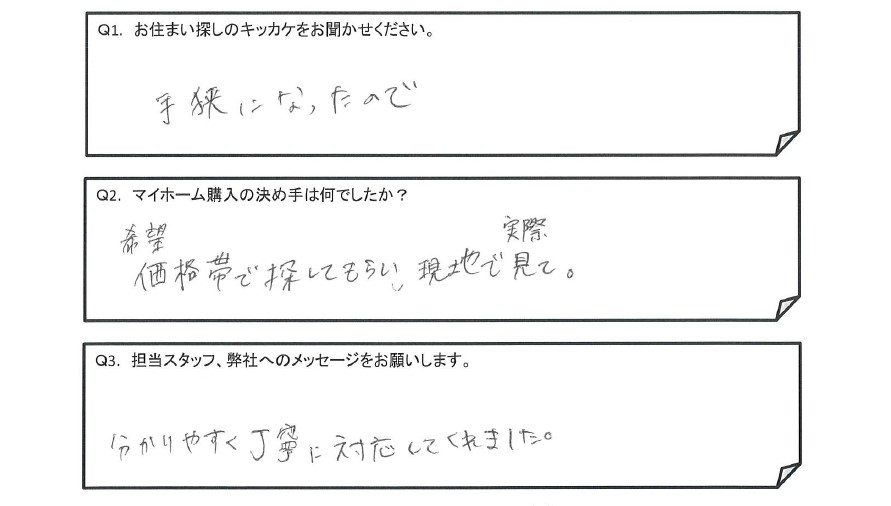 Q1. お住まい探しのキッカケをお聞かせください。
手狭になったので
Q2. マイホーム購入の決め手は何でしたか？
希望 実際
価格帯で探してもらい、現地で見て。
Q3. 担当スタッフ、弊社へのメッセージをお願いします。
分かりやすく丁寧に対応してくれました。